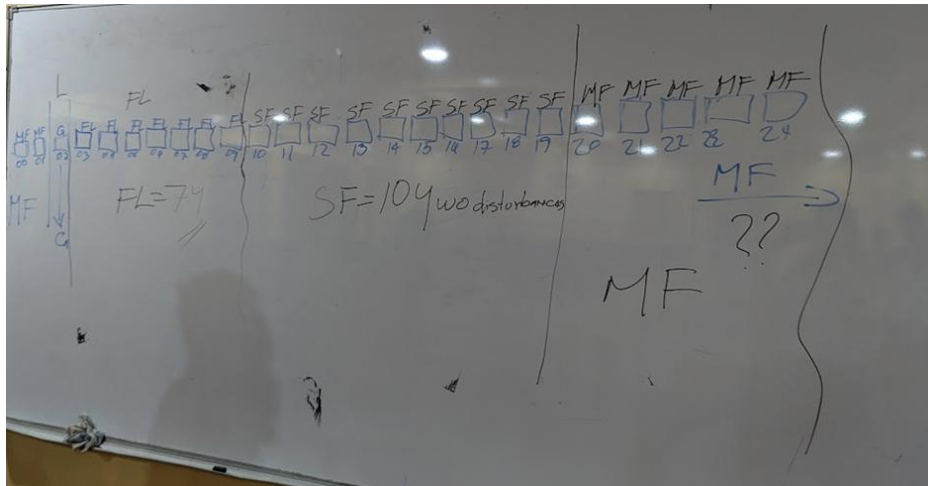 L
FL
MF MF G FL FL FL FL FL FL FL SF SF SF SF SF SF SF SF SF SF MF MF MF MF MF
00 01 02 03 04 05 06 07 08 09 10 11 12 13 14 15 16 17 18 19 20 21 22 23 24
MF
G
FL=7y
SF=10y wo disturbances
MF
??
MF